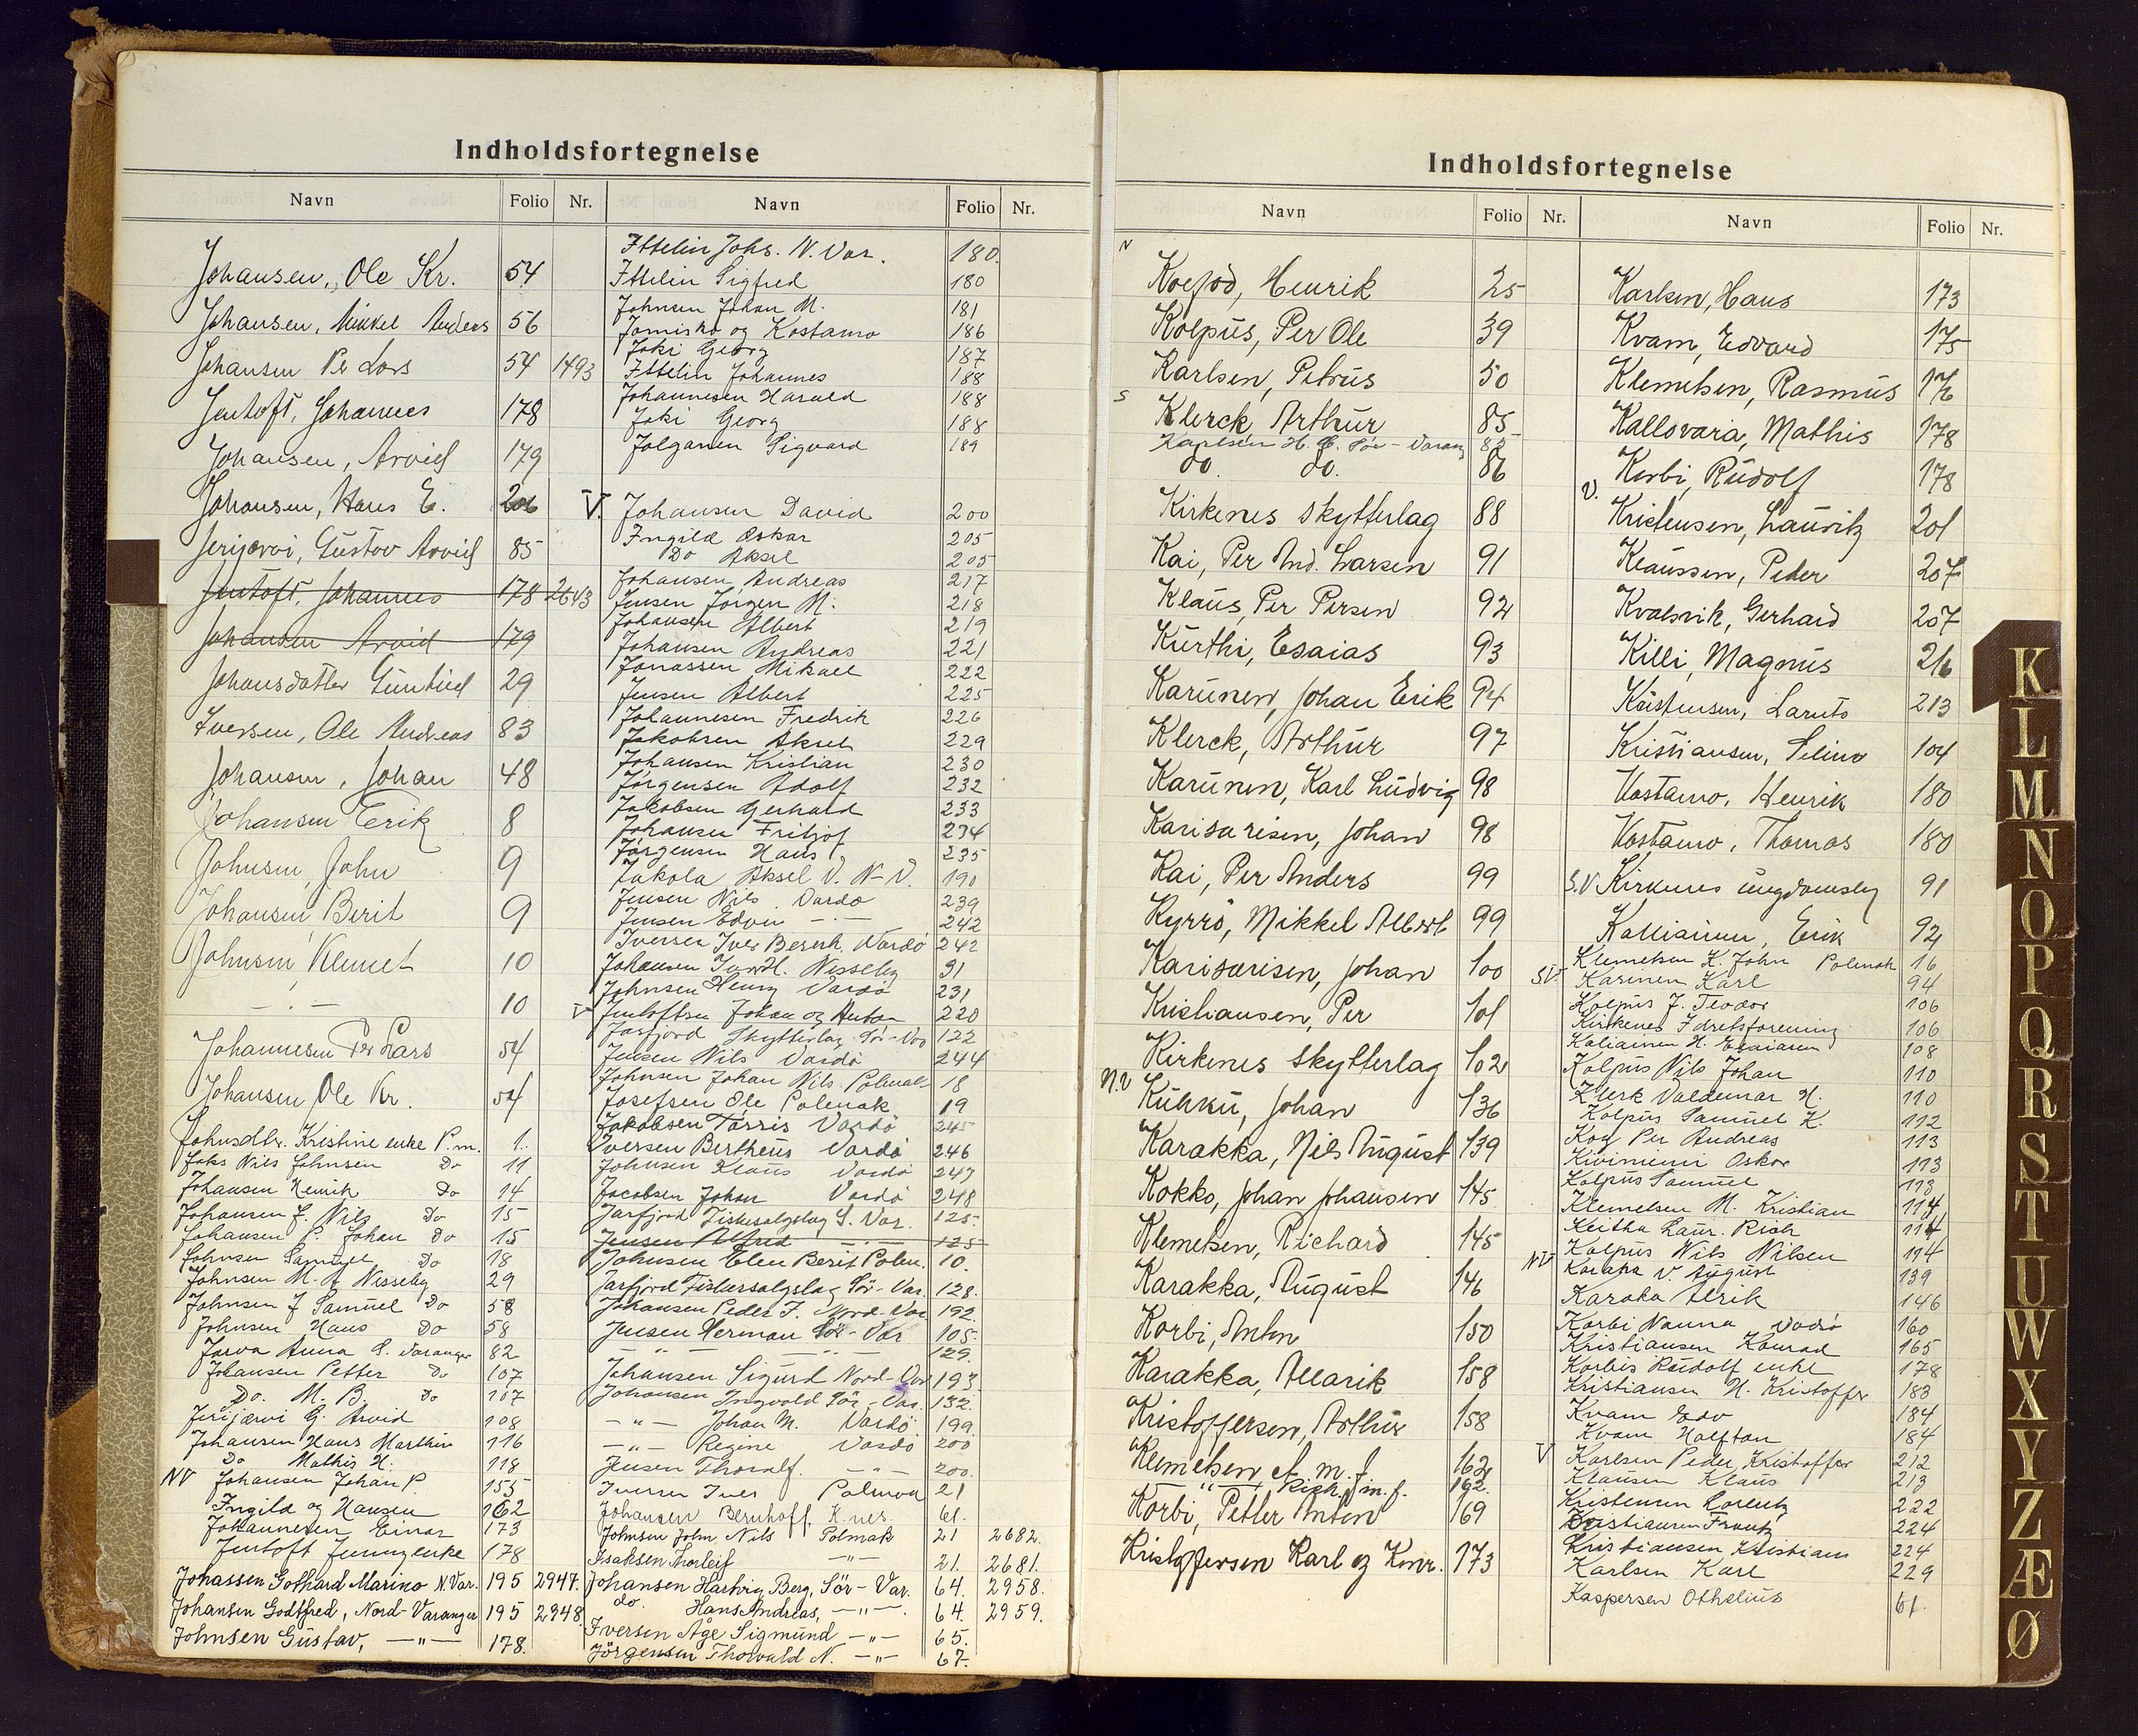 Indholdsfortegnelse
Navn Folio Nr. Navn Folio Nr.
Johansen, Ole Kr. 54
Johansen, Mikkel Anders 56
Johansen Per Lars 54 1493
Jentoft, Johannes 178
Johansen, Arvid 179
Johansen, Hans E. 206
Jerijærvi, Gustav Arvid 85
Jentoft, Johannes 178 2643
Johansen Arvid 179
Johansdatter Gunhild 29
Iversen, Ole Andreas 83
Johansen, Johan 48
Johansen Erik 8
Johnsen, John 9
Johansen, Berit 9
Johnsen, Klemet 10
— " — 10
Johannesen Per Lars 54
Johansen Ole Kr. 54
Johnsdtr. Kristine enke P.m. 1.
Joks Nils Johnsen Do 11
Johansen Henrik Do 14
Johansen J. Nils Do 15
Johansen P. Johan Do 15
Johnsen Samuel Do 18
Johnsen M. J. Nesseby 29
Johnsen J Samuel Do 58
Johnsen Hans Do 58
Jarva Anna S. Varanger 82
Johansen Petter Do 107
Do. M. B. Do 107
Jerijærvi G. Arvid 108
Johansen Hans Marthin 116
Do Mathis H. 118
NV Johansen Johan P. 155
Ingild og Hansen 162
Johannesen Einar 173
Jentoft Jenny enke 178
Johassen Gothard Marino N. Var. 195 2947.
Johansen Godtfred, Nord-Varanger 195 2948
Johnsen Gustav, — " — 178.
Ittelin Johs. N. Var. 180.
Ittelin Sigfred 180
Johnsen Johan M. 181
Jomisko og Kostamo 186
Joki Georg 187
Ittelin Johannes 188
Johannesen Harald 188
Joki Georg 188
Jolganen Sigvard 189
V. Johansen David 200
Ingild Oskar 205
Do Aksel 205
Johansen Andreas 217
Jensen Jørgen M. 218
Johansen Albert 219
Johansen Andreas 221
Jonassen Mikael 222
Jensen Albert 225
Johannesen Fredrik 226
Jakobsen Aksel 229
Johansen Kristian 230
Jørgensen Adolf 232
Jakobsen Gerhard 233
Johansen Fritjof 234
Jørgensen Hans 235
Jakola Aksel V. N-V. 190
Jensen Nils Vardø 239
Jensen Edvin — " — 242
Iversen Iver Bernh. Vardø 242
Johansen Nesseby 31
Johnsen Henry Vardø 231
V Jentoftsen Johan og Anton 220
Jarfjord Skytterlag Sør-Var 122
Jensen Nils Vardø 244
Johnsen Johan Nils Polmak 18
Josefsen Ole Polmak 19
Jakobsen Torris Vardø 245
Iversen Bertheus Vardø 246
Johnsen Klaus Vardø 247
Jacobsen Johan Vardø 248
Jarfjord Fiskesalgslag S. Var. 125.
Jensen Alfred — " — 125
Johnsen Elen Berit Polm. 10.
Jarfjord Fiskersalgslag Sør-Var. 128.
Johansen Peder J. Nord-Var 192.
Jensen Herman Sør-Var 105.
— " — — " — 129.
Johansen Sigurd Nord-Var 193.
Johansen Ingvald Sør-Var. 132.
— " — Johan M. Vardø 199.
— " — Regine Vardø 200
Jensen Thoralf. — " — 200.
Iversen Iver Polmak 21
Johansen Bernhoff. K.nes. 61.
Johnsen John Nils Polmak 21 2682.
Isaksen Thorleif — " — 21. 2681.
Johansen Hartvig Berg, Sør-Var. 64. 2958.
do. Hans Andreas, — " —. 64. 2959.
Iversen Åge Sigmund — " — 65.
Jörgensen Thorvald N. — " — 67.
Indholdsfortegnelse
Navn Folio Nr. Navn Folio Nr.
N
Koefod, Henrik 25
Kolpus, Per Ole 39
Karlsen, Petrus 50
S Klerck, Arthur 85
Karlsen H. E. Sør-Varang 82
do. do. 86
Kirkenes Skytterlag 88
Kai, Per And. Larsen 91
Klaus, Per Persen 92
Kurthi, Esaias 93
Karunen, Johan Erik 94
Klerck, Arthur 97
Karunen, Karl Ludvig 98
Karisarisen, Johan 98
Kai, Per Anders 99
Kyrrö, Mikkel Albert 99
Karisarisen, Johan 100
Kristiansen, Per 101
Kirkenes Skytterlag 102
N.V Kuhku, Johan 136
Karakka, Nils August 139
Kokko, Johan Johansen 145
Klemetsen, Richard 145
Karakka, August 146
Korbi, Anton 150
Karakka, Allarik 158
Kristoffersen, Arthur 158
Klemetsen, A. m. f. 162
— " — Rich. m. f. 162.
Korbi, Petter Anton 169
Kristoffersen Karl og Konr. 173
Karlsen, Hans 173
Kvam, Edvard 175
Klemetsen, Rasmus 176
Kallovara, Mathis 178
Korbi, Rudolf 178
V. Kristensen, Lauritz 201
Klaussen, Peder 207
Kvalsvik, Gerhard 207
Killi, Magnus 216
Kristensen, Laruts 213
Kristiansen, Selino 104
Kostamo, Henrik 180
Kostamo, Thomas 180
S.V Kirkenes ungdomslag 91
Kalliainen, Erik 92
Klemetsen K. John Polmak 16
S.V. Karinen Karl 94
Kolpus J. Teodor 106
Kirkenes Idretsforening 106
Kaliainen H. Esaiasen 108
Kolpus Nils Johan 110
Klerk Valdemar H. 110
Kolpus Samuel K. 112
Koy Per Andreas 113
Kiviniemi Oskar 113
Kolpus Samuel 113
Klemetsen M. Kristian 114
Keitha Laur. Rich 114
Kolpus Nils Nilsen 114
NV Karaka V. August 139
Karaka Alrik 146
Korbi Nanna Vadsø 160
Kristiansen Konrad 165
Korbis Rudolf enke 178
Kristiansen H. Kristoffer 183
Kvam Edv 184
Kvam Halftan 184
V Karlsen Peder Kristoffer 212
Klausen Klaus 213
Kristensen Lorentz 222
Kristiansen Frantz 224
Kristiansen Kristian 224
Karlsen Karl 229
Kaspersen Othelius 61.
K
L
M
N
O
P
Q
R
S
T
U
W
X
Y
Z
Æ
Ø